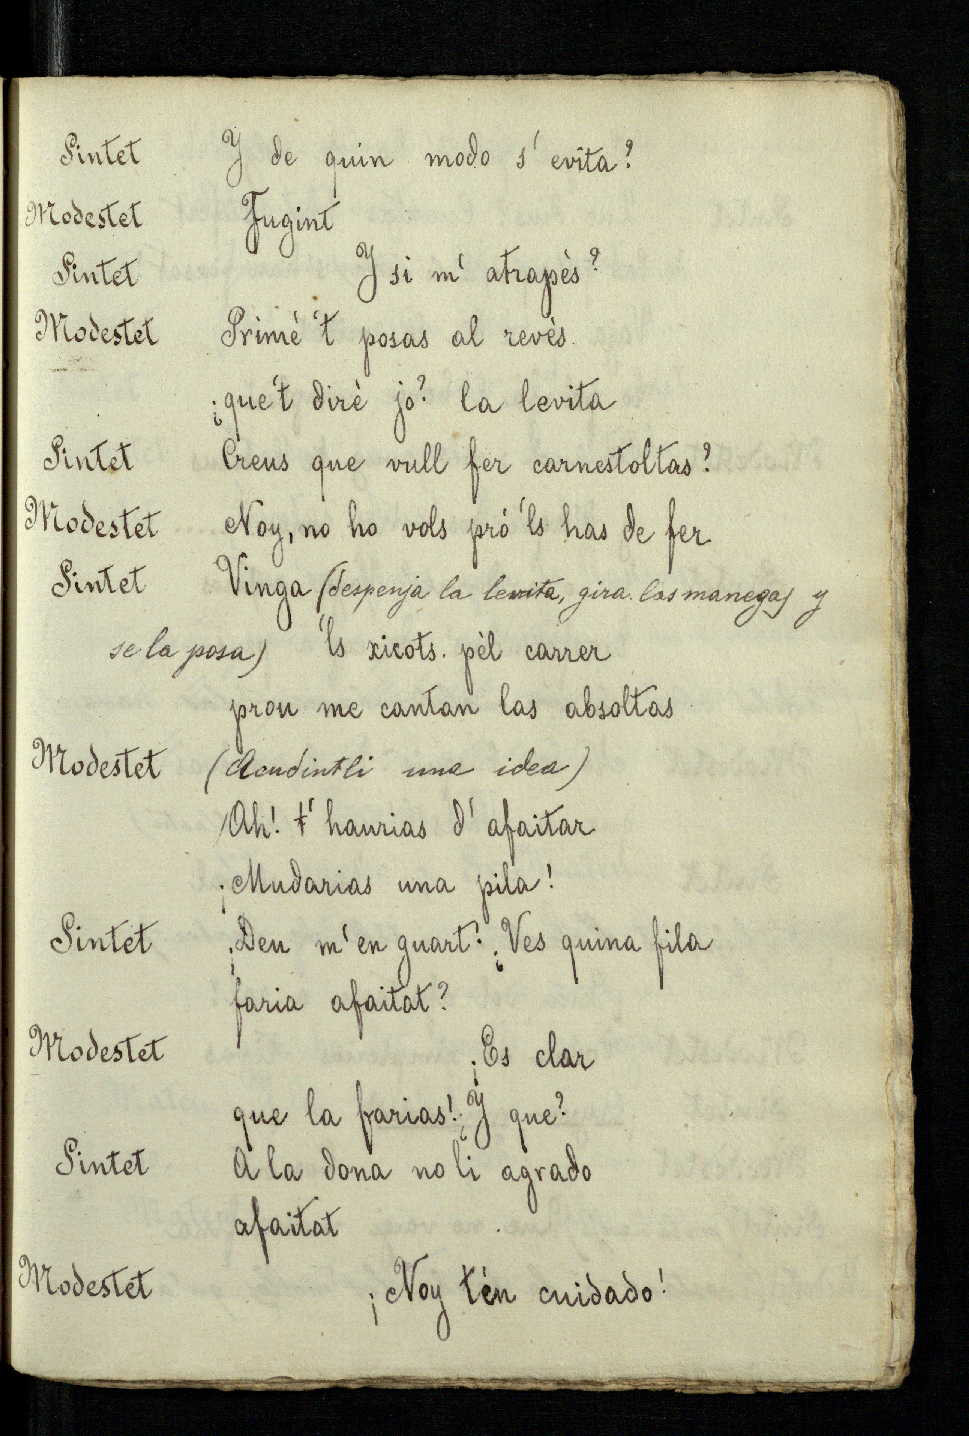 Sintet Y de quin modo s' evita?
Modestet Fugint
Sintet Y si m' atrapès?
Modestet Primé 't posas al revès.
¿que't dirè jo? la levita
Sintet Creus que vull fer carnestoltas?
Modestet Noy, no ho vols pró 'ls has de fer
Sintet Vinga (despenja la levita, gira las manegas y
se la posa) 'ls xicots. pèl carrer
prou me cantan las absoltas
Modestet (Acudintli una idea)
¡Ah! t' haurias d' afaitar
¡Mudarias una pila!
Sintet ¡Deu m' en guart! ¿Ves quina fila
faria afaitat?
Modestet ¡Es clar
que la farias! ¿Y que?
Sintet A la dona no li agrado
afaitat
Modestet ¡Noy tén cuidado!